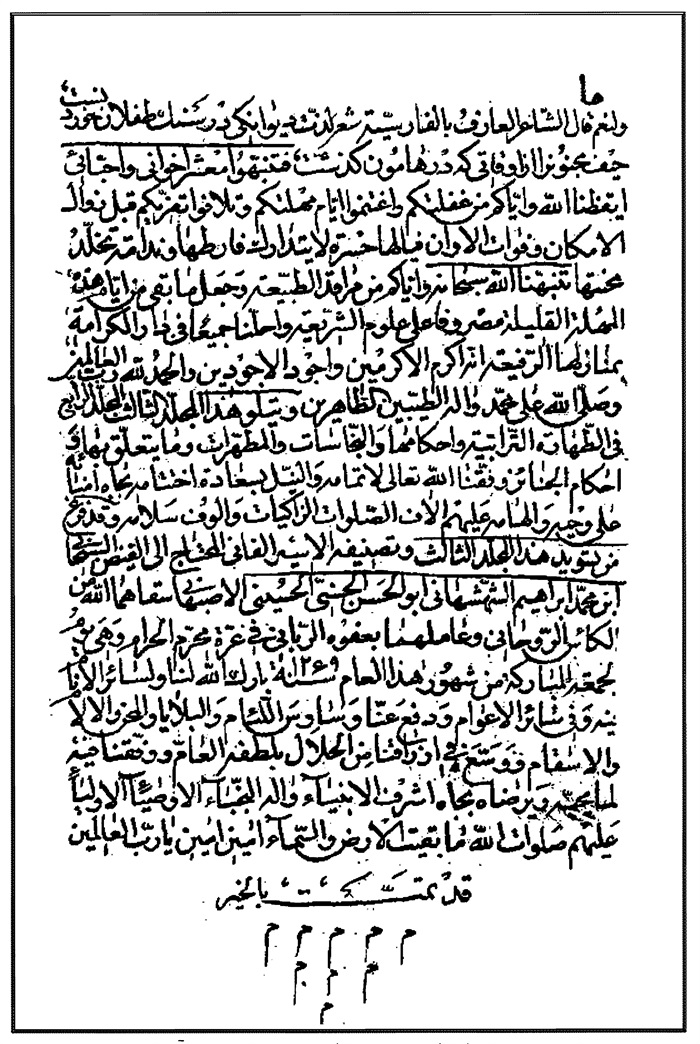 ولنعم قال الشاعر العارف بالفارسية شعر لذت ديوانكى در سنك طفلان خوردنست
حيف مجنون را اوقاتى كه در هامون كذشت فتنبهوا معشر اخوانى واحبائى
ايقظنا الله واياكم من غفلتكم واغتنموا ايام مهلتكم وتلافوا تفريطكم قبل زوال
الامكان وفوات الاوان فيالها حسرة لا يتدارك فارطها وندامة تخلد
محنتها نبهنا الله سبحانه واياكم من مراقد الطبيعة وجعل ما بقى من ايام هذه
المهلة القليلة مصروفا على علوم الشريعة واحلنا جميعا فى دار الكرامة
بمنازلها الرفيعة انه اكرم الاكرمين واجود الاجودين والحمد لله رب العالمين
وصلى الله على محمد واله الطيبين الطاهرين ويتلو هذا المجلد الثالث المجلد الرابع
فى الطهارة الترابية واحكامها والنجاسات والمطهرات وما يتعلق بها و
احكام الجنائز وفقنا الله تعالى لاتمامه والنيل بسعادة اختتامه بجاه امنائه
على وحيه والهامه عليهم الاف الصلوات الزاكيات والوف سلامه وقد فرغ
من تسويد هذا المجلد الثالث وتصنيفه الاسير الفانى المحتاج الى الفيض السبحانى
ابن محمد ابراهيم الشمشهانى ابو الحسن الحسنى الحسينى الاصبهانى سقاهما الله من
الكاس الروحانى وعاملهما بعفوه الربانى فى غرة محرم الحرام وهى يوم
لجمعة المباركة من شهور هذا العام سنة بارك الله لنا ولسائر الانام
فيه وفى سائر الاعوام ودفع عنا وساوس اللئام والبلايا والمحن والالام
والاسقام ووسع فى ارزاقنا من الحلال بلطفه العام ووفقنا فيه
لما يحبه ويرضاه بجاه اشرف الانبياء واله النجباء الاوصياء الاولياء
عليهم صلوات الله ما بقيت الارض والسماء امين امين يا رب العالمين
قد تمت بالخير
م م م م م
م م م
م